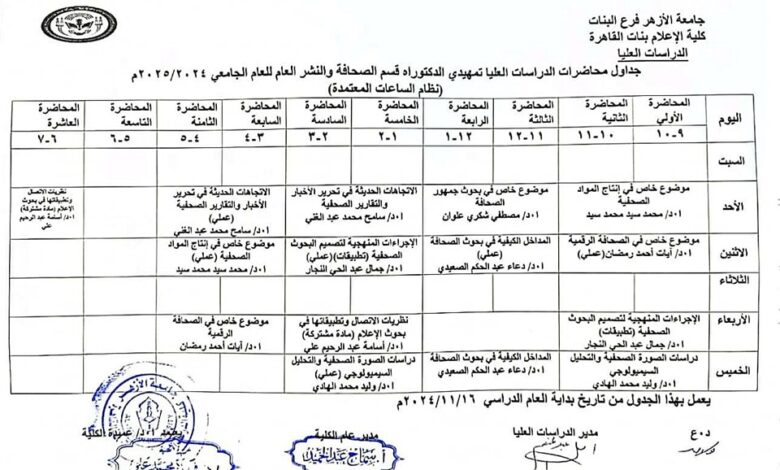 جامعة الأزهر فرع البنات
كلية الإعلام بنات القاهرة
الدراسات العليا
جداول محاضرات الدراسات العليا تمهيدي الدكتوراه قسم الصحافة والنشر العام للعام الجامعي ٢٠٢٥/٢٠٢٤م
(نظام الساعات المعتمدة)
اليوم
المحاضرة الأولي
المحاضرة الثانية
المحاضرة الثالثة
المحاضرة الرابعة
المحاضرة الخامسة
المحاضرة السادسة
المحاضرة السابعة
المحاضرة الثامنة
المحاضرة التاسعة
المحاضرة العاشرة
٩-١٠
١٠-١١
١١-١٢
١٢-١
١-٢
٢-٣
٣-٤
٤-٥
٥-٦
٦-٧
السبت
الأحد
موضوع خاص في إنتاج المواد
الصحفية
ا.د/ محمد سيد محمد سيد
موضوع خاص في بحوث جمهور
الصحافة
ا.د/ مصطفي شكري علوان
الاتجاهات الحديثة في تحرير الأخبار
والتقارير الصحفية
ا.د/ سامح محمد عبد الغني
الاتجاهات الحديثة في تحرير
الأخبار والتقارير الصحفية
(عملي)
ا.د/ سامح محمد عبد الغني
نظريات الاتصال
وتطبيقاتها في بحوث
الإعلام (مادة مشتركة)
ا.د/ أسامة عبد الرحيم
علي
الاثنين
موضوع خاص في الصحافة الرقمية
ا.د/ آيات أحمد رمضان(عملي)
المداخل الكيفية في بحوث الصحافة
(عملي)
ا.د/ دعاء عبد الحكم الصعيدي
الإجراءات المنهجية لتصميم البحوث
الصحفية (تطبيقات)(عملي)
ا.د/ جمال عبد الحي النجار
موضوع خاص في إنتاج المواد
الصحفية (عملي)
ا.د/ محمد سيد محمد سيد
الثلاثاء
الأربعاء
الإجراءات المنهجية لتصميم البحوث
الصحفية (تطبيقات)
ا.د/ جمال عبد الحي النجار
نظريات الاتصال وتطبيقاتها في
بحوث الإعلام (مادة مشتركة)
ا.د/ أسامة عبد الرحيم علي
موضوع خاص في الصحافة
الرقمية
ا.د/ آيات أحمد رمضان
الخميس
دراسات الصورة الصحفية والتحليل
السيميولوجي
ا.د/ وليد محمد الهادي
المداخل الكيفية في بحوث الصحافة
ا.د/ دعاء عبد الحكم الصعيدي
دراسات الصورة الصحفية والتحليل
السيميولوجي (عملي)
ا.د/ وليد محمد الهادي
يعمل بهذا الجدول من تاريخ بداية العام الدراسي ٢٠٢٤/١١/١٦م
د.ع
مدير الدراسات العليا
مدير عام الكلية
يعتمد ا.د/ عميدة الكلية
أ. سماح عبد الحميد
جامعة الأزهر